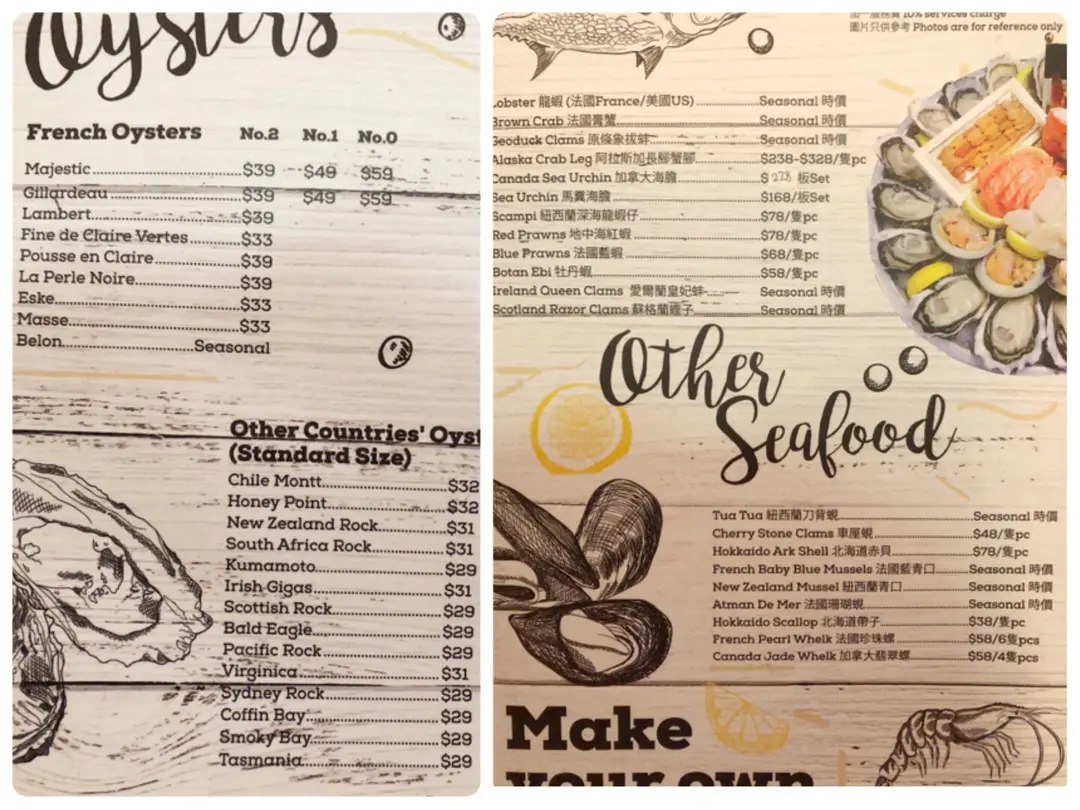 Oysters
French Oysters No.2 No.1 No.0
Majestic..........$39 $49 $59
Gillardeau..........$39 $49 $59
Lambert..........$39
Fine de Claire Vertes..........$33
Pousse en Claire..........$39
La Perle Noire..........$39
Eske..........$33
Masse..........$33
Belon..........Seasonal
Other Countries' Oyst
(Standard Size)
Chile Montt..........$32
Honey Point..........$32
New Zealand Rock..........$31
South Africa Rock..........$31
Kumamoto..........$29
Irish Gigas..........$31
Scottish Rock..........$29
Bald Eagle..........$29
Pacific Rock..........$29
Virginica..........$31
Sydney Rock..........$29
Coffin Bay..........$29
Smoky Bay..........$29
Tasmania..........$29
加一服務費 10% services charge
圖片只供參考 Photos are for reference only
Lobster 龍蝦 (法國France/美國US)..........Seasonal 時價
Brown Crab 法國膏蟹..........Seasonal 時價
Geoduck Clams 原條象拔蚌..........Seasonal 時價
Alaska Crab Leg 阿拉斯加長腳蟹腳..........$238-$328/隻pc
Canada Sea Urchin 加拿大海膽..........$ 228 板Set
Sea Urchin 馬糞海膽..........$168/板Set
Scampi 紐西蘭深海龍蝦仔..........$78/隻pc
Red Prawns 地中海紅蝦..........$78/隻pc
Blue Prawns 法國藍蝦..........$68/隻pc
Botan Ebi 牡丹蝦..........$58/隻pc
Ireland Queen Clams 愛爾蘭皇妃蚌..........Seasonal 時價
Scotland Razor Clams 蘇格蘭蟶子..........Seasonal 時價
Other
Seafood
Tua Tua 紐西蘭刀背蜆..........Seasonal 時價
Cherry Stone Clams 車厘蜆..........$48/隻pc
Hokkaido Ark Shell 北海道赤貝..........$78/隻pc
French Baby Blue Mussels 法國藍青口..........Seasonal 時價
New Zealand Mussel 紐西蘭青口..........Seasonal 時價
Atman De Mer 法國珊瑚蜆..........Seasonal 時價
Hokkaido Scallop 北海道帶子..........$38/隻pc
French Pearl Whelk 法國珍珠螺..........$58/6隻pcs
Canada Jade Whelk 加拿大翡翠螺..........$58/4隻pcs
Make
your own